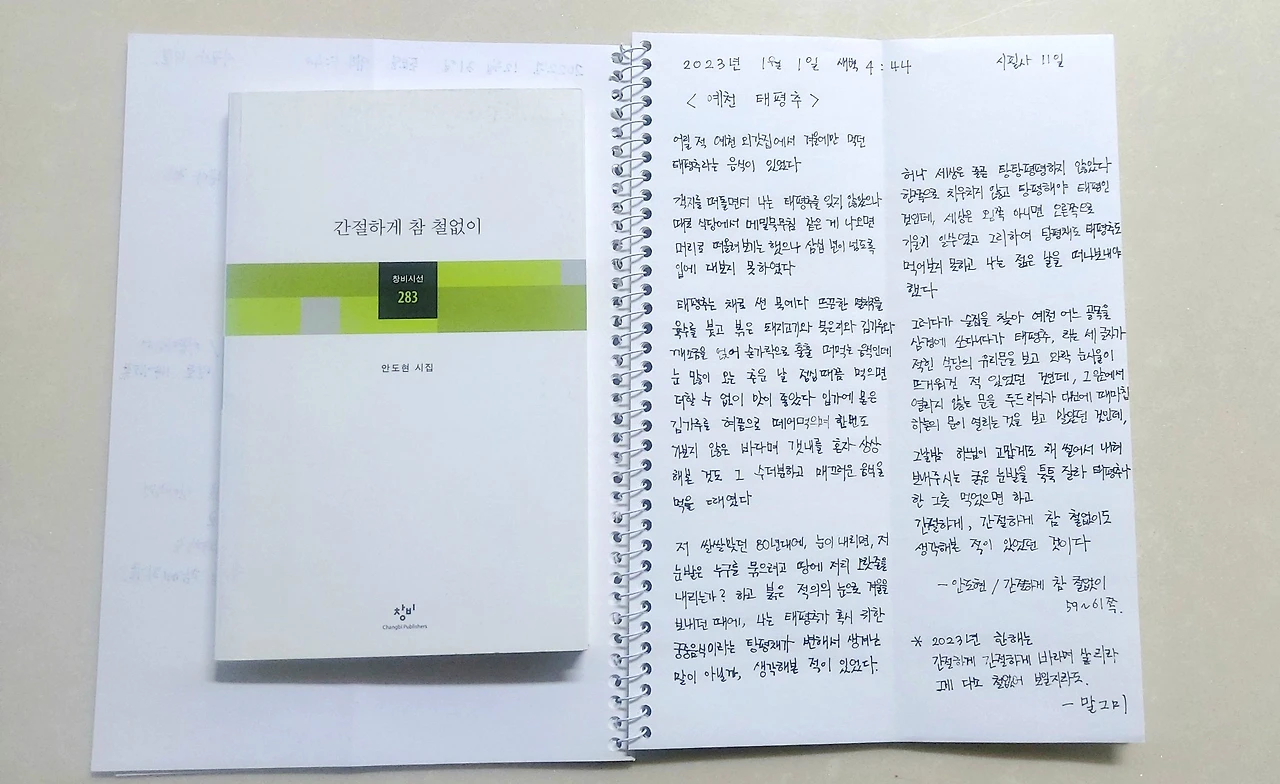 간절하게 참 철없이
창비시선
283
안도현 시집
창비
Changbi Publishers
2023년 1월 1일 새벽 4:44
시필사 11일
< 예천 태평추 >
어릴 적 예천 외갓집에서 겨울에만 먹던
태평추라는 음식이 있었다
객지를 떠돌면서 나는 태평추를 잊지 않았으나
때로 식당에서 메밀묵무침 같은 게 나오면
머리로 떠올려보기는 했으나 삼십 년이 넘도록
입에 대보지 못하였다
태평추는 채로 썬 묵에다 뜨끈한 멸치국물
육수를 붓고 볶은 돼지고기와 묵은지와 김가루와
깨소금을 얹어 숟가락으로 훌훌 떠먹는 음식인데
눈 많이 오는 추운 날 점심때쯤 먹으면
더할 수 없이 맛이 좋았다 입가에 묻은
김가루를 혀끝으로 떼어먹으며 한번도
가보지 않은 바다며 갯내를 혼자 상상
해본 것도 그 수더분하고 매끄러운 음식을
먹을 때였다
저 쌀쌀맞던 80년대에, 눈이 내리면, 저
눈발은 누구를 묶으려고 땅에 저리 오랏줄을
내리는가? 하고 붉은 적의의 눈으로 겨울을
보내던 때에, 나는 태평추가 혹시 귀한
궁중음식이라는 탕평채가 변해서 생겨난
말이 아닐까, 생각해본 적이 있었다.
허나 세상은 줄곧 탕탕평평하지 않았다
한쪽으로 치우치지 않고 탕평해야 태평인
것인데, 세상은 왼쪽 아니면 오른쪽으로
기울기 일쑤였고 그리하여 탕평채도 태평추도
먹어보지 못하고 나는 젊은 날을 떠나보내야
했다
그러다가 술집을 찾아 예천 어느 골목을
삼경에 쏘다니다가 태평추, 라는 세 글자가
적힌 식당의 유리문을 보고 와락 눈시울이
뜨거워진 적 있었던 것인데, 그 앞에서
열리지 않는 문을 두드리다가 대신에 때마침
하늘의 문이 열리는 것을 보고 말았던 것인데,
그날밤 하느님이 고맙게도 채 썰어서 내려
보내주시는 굵은 눈발을 툭툭 잘라 태평추나
한 그릇 먹었으면 하고
간절하게, 간절하게 참 철없이도
생각해본 적이 있었던 것이다
- 안도현 / 간절하게 참 철없이
59~61쪽.
* 2023년 한해는
간절하게 간절하게 바라며 살리라
그게 다소 철없어 보일지라도.
- 말그미